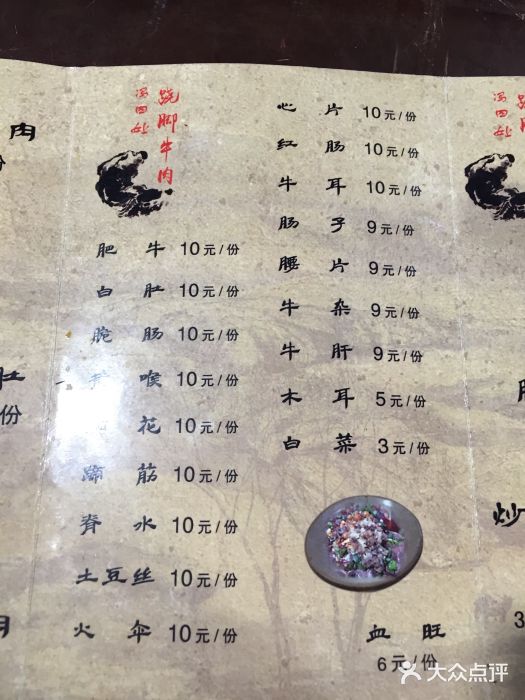 肉
份
肚
份
冯四嫂
跷脚牛肉
肥牛 10元/份
白肚 10元/份
脆肠 10元/份
喉 10元/份
花 10元/份
蹄筋 10元/份
脊水 10元/份
土豆丝 10元/份
火伞 10元/份
心片 10元/份
红肠 10元/份
牛耳 10元/份
肠子 9元/份
腰片 9元/份
牛杂 9元/份
牛肝 9元/份
木耳 5元/份
白菜 3元/份
血旺
6元/份
冯四嫂
跷脚
炒
3
大众点评